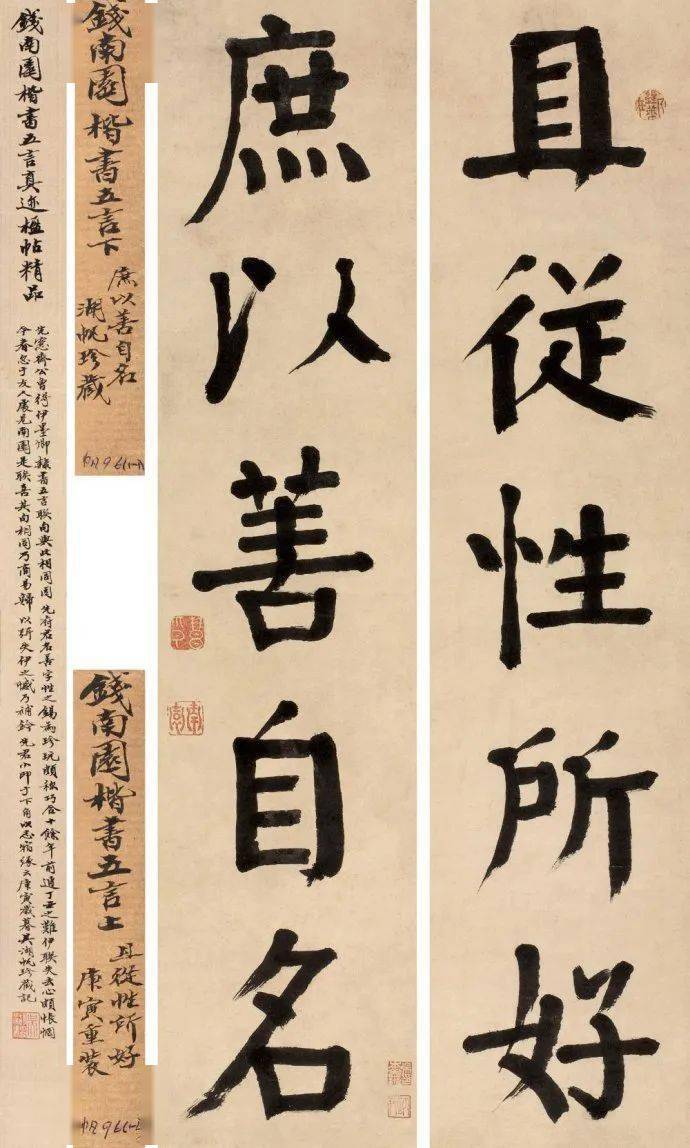 且従性所好
庶以善自名
錢南園楷書五言下
庶以善自名
湖帆珍藏
錢南園楷書五言上
且從性所好
庚寅重裝
錢南園楷書五言真迹楹帖精品
先愙齋公曾得伊墨卿隸書五言聯句與此相同因先府君名善字性之錫為珍玩頗称巧合十餘年前遭丁丑之難伊聯失去心頗悵惘
今春忽于友人處見南園是聯喜其句相同乃商易歸以失伊之憾乃補鈐先君小印于下角以志宿緣云庚寅歲暮吳湖帆珍藏記